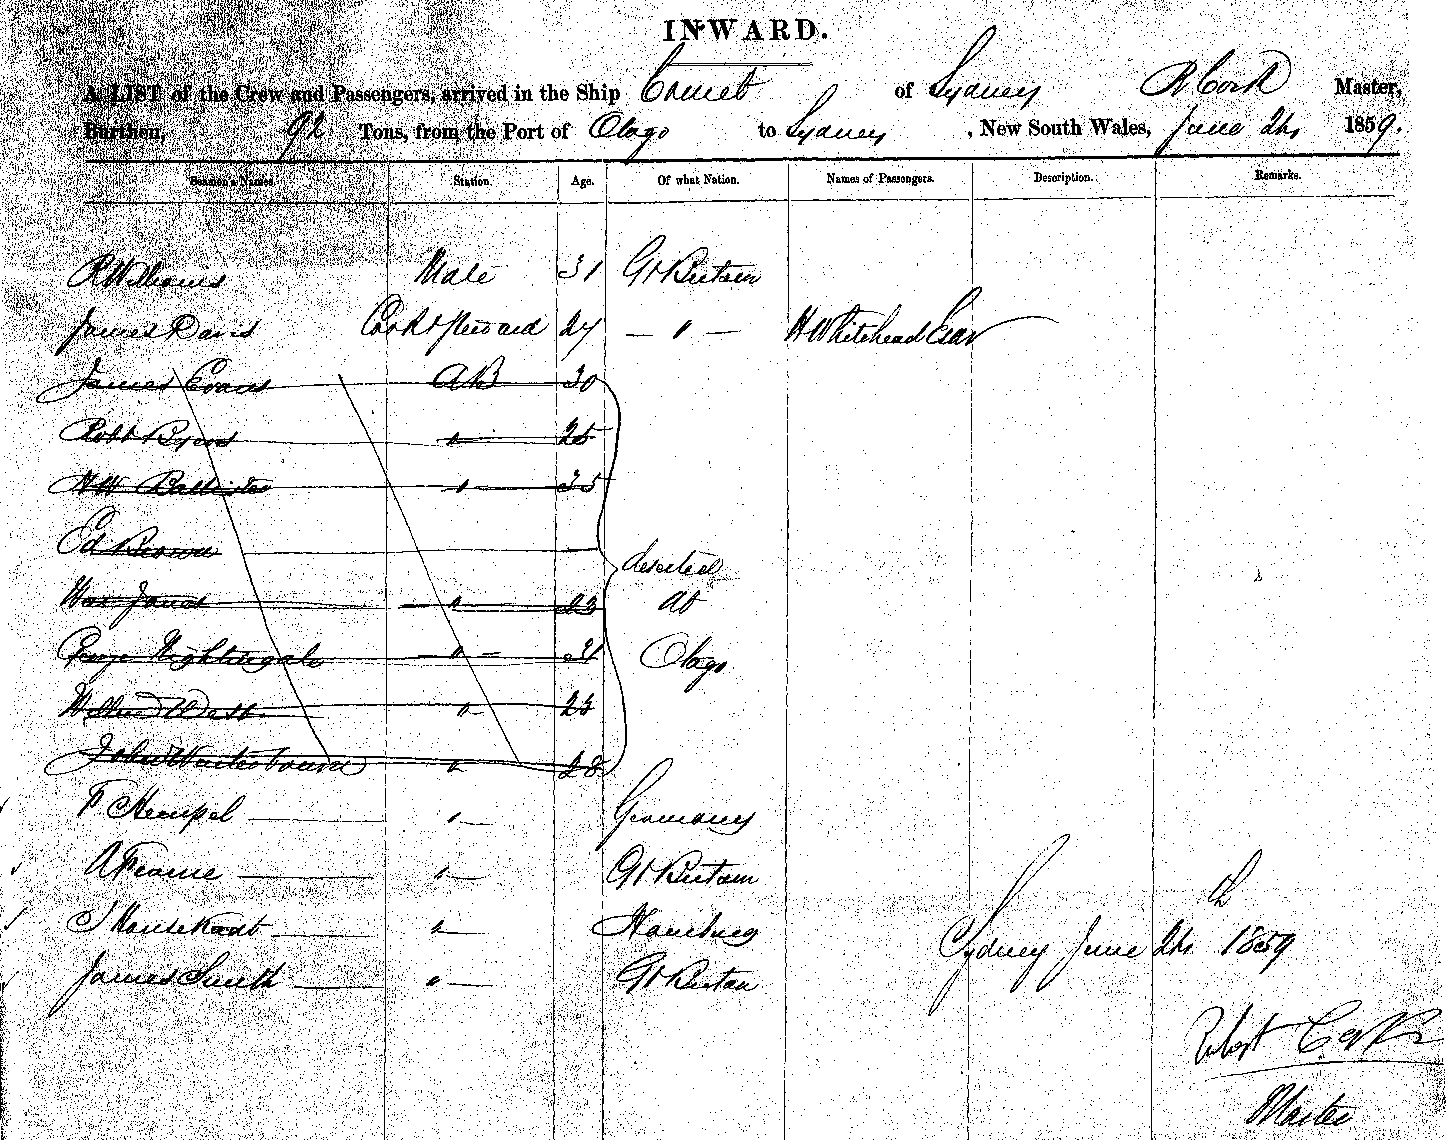 INWARD.
A LIST of the Crew and Passengers, arrived in the Ship Comet of Sydney R Cork Master,
Burthen, 92 Tons, from the Port of Otago to Sydney, New South Wales, June 24 1859.
Seamen's Names. Station. Age. Of what Nation. Names of Passengers. Description. Remarks.
R Williams Mate 31 Gt Britain
James Davis Cook & Steward 24 — " — H Whitehead Esqr
James Evans AB 30
Robt Byers " 25
Wm "  35
Ed Brown
deserted
Wm " 23
at
George Nightingale " 31
Otago
West " 23
John " 28
F Hempel " Germany
A " Gt Britain
J " Hamburg
James Smith " Gt Britain
Sydney June 24 th 1859
Robert Cork
Master